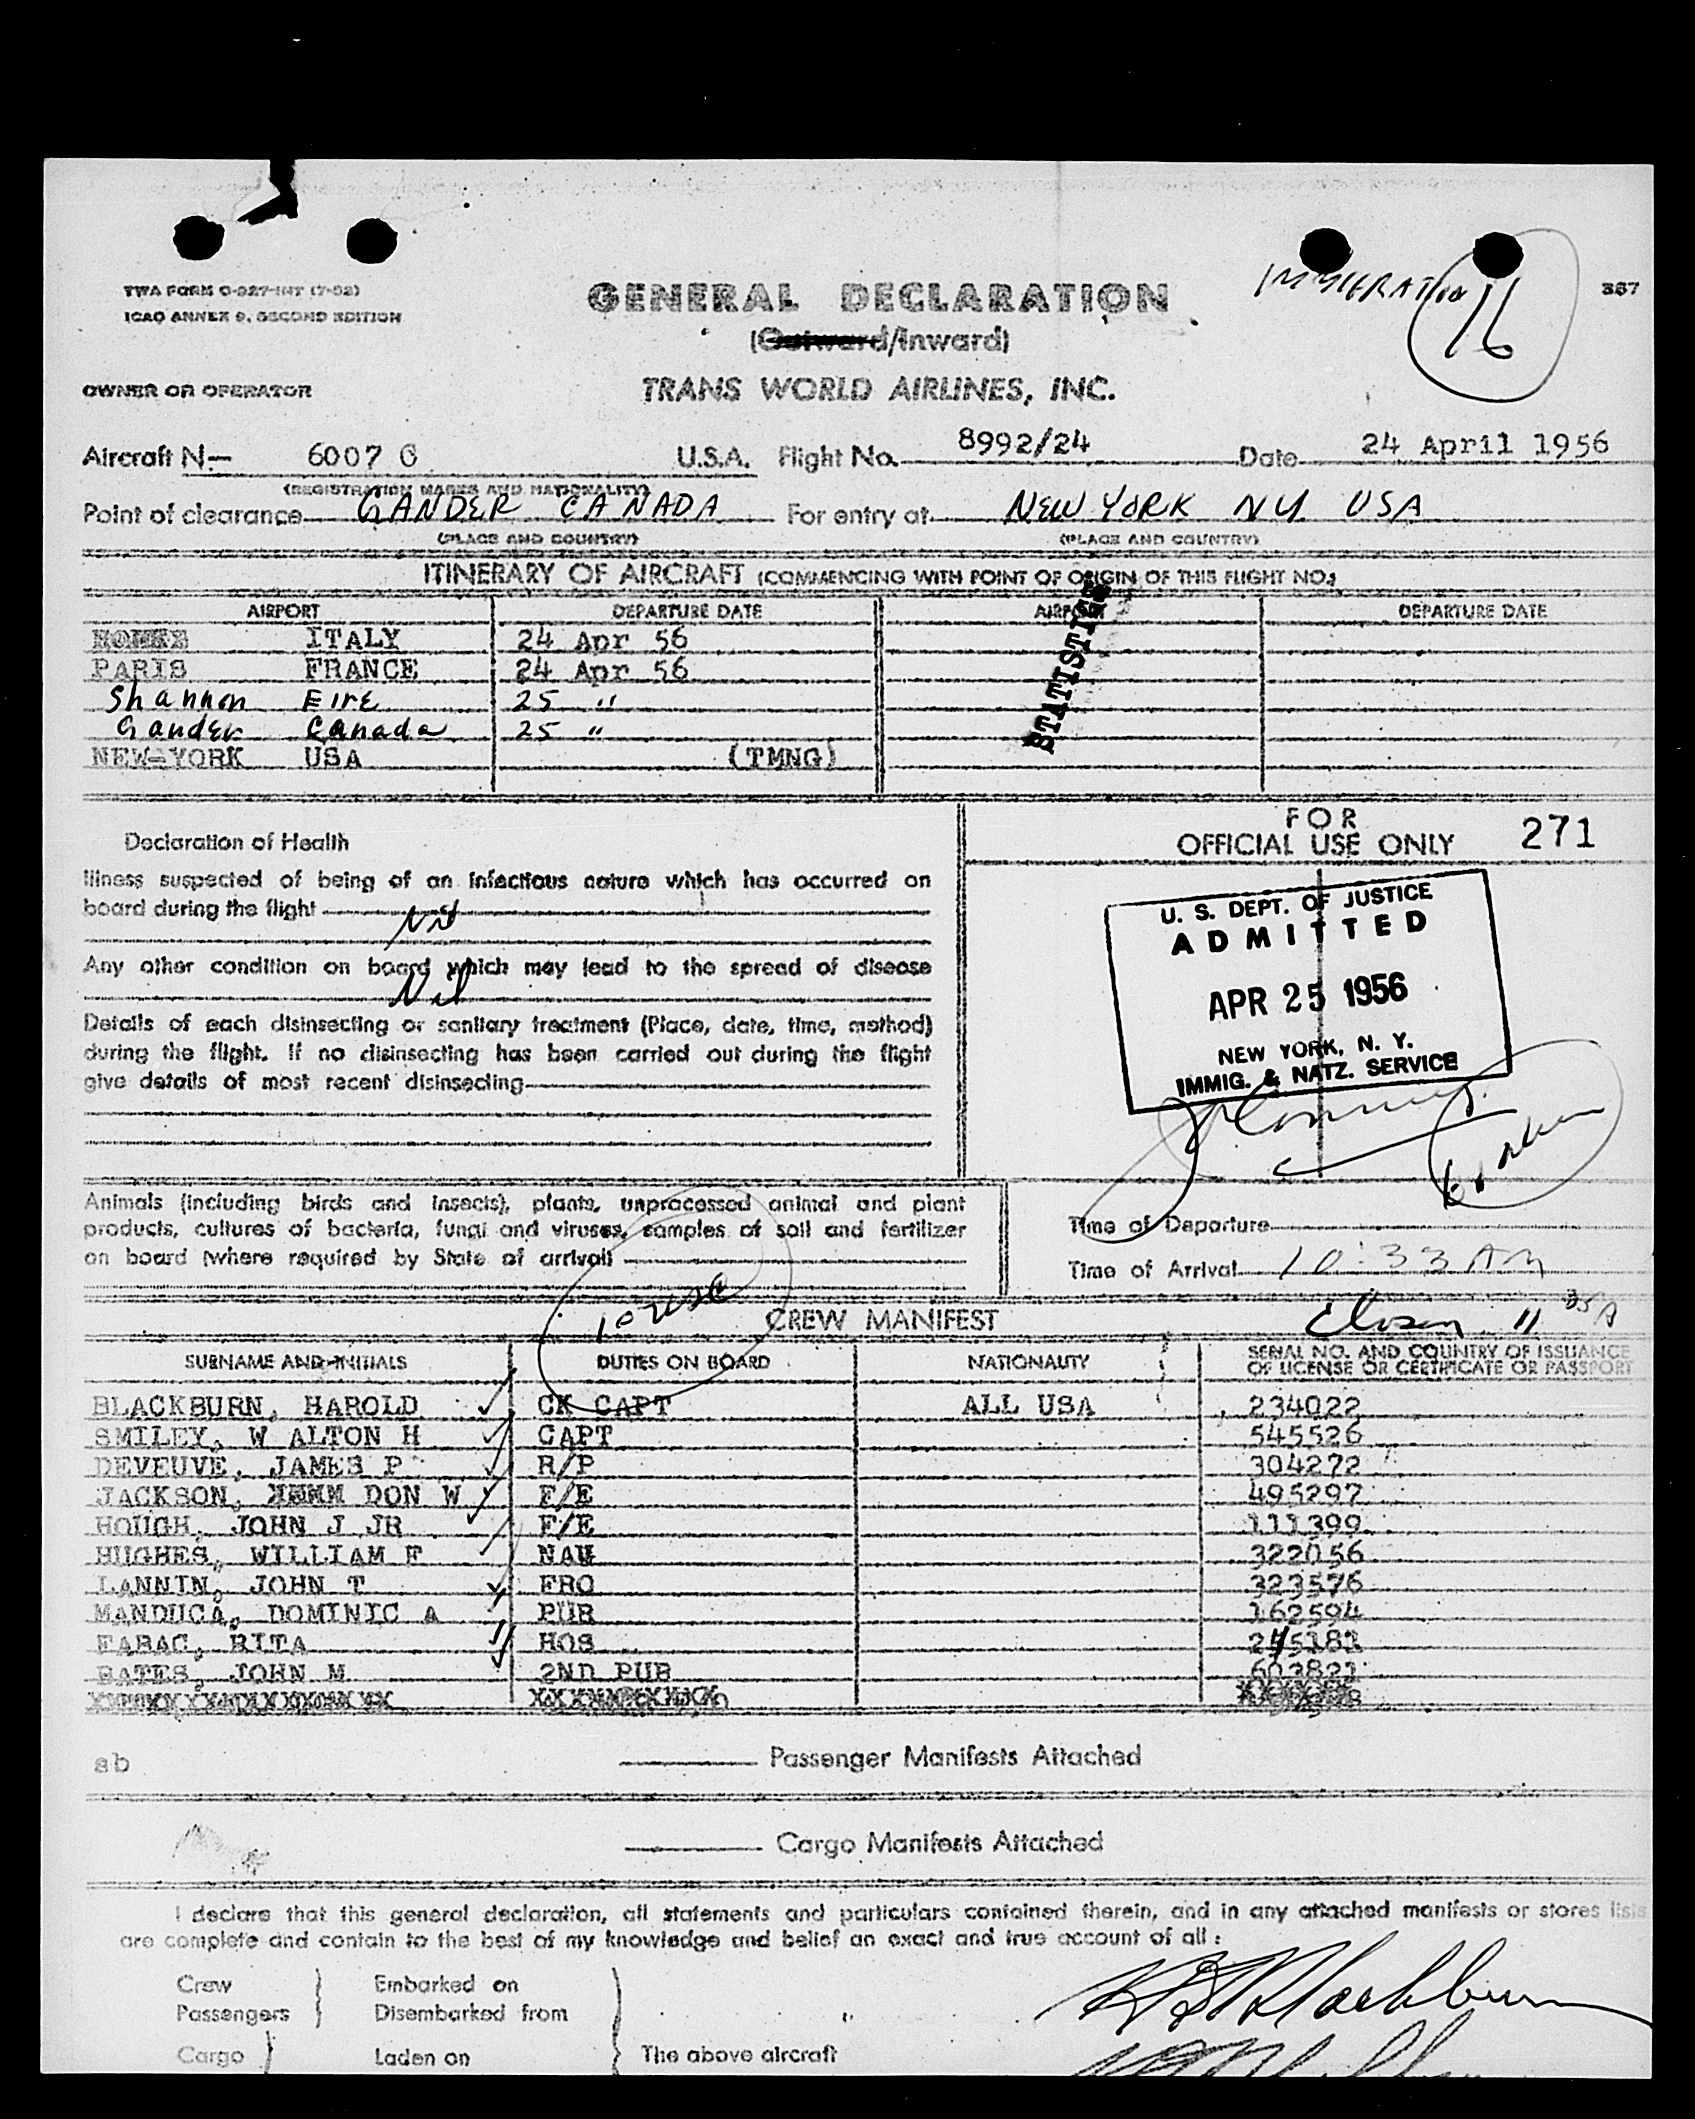 TWA FORM O-327-INT (7-52)
ICAO ANNEX 9, SECOND EDITION
GENERAL DECLARATION
IMMIGRATION 16
367
(Outward/Inward)
OWNER OR OPERATOR
TRANS WORLD AIRLINES, INC.
Aircraft N— 6007 C U.S.A. Flight No. 8992/24 Date 24 April 1956
(REGISTRATION MARKS AND NATIONALITY)
Point of clearance GANDER CANADA For entry at NEW YORK NY USA
(PLACE AND COUNTRY) (PLACE AND COUNTRY)
ITINERARY OF AIRCRAFT (COMMENCING WITH POINT OF ORIGIN OF THIS FLIGHT NO.)
AIRPORT DEPARTURE DATE AIRPORT DEPARTURE DATE
ITALY 24 Apr 56
PARIS FRANCE 24 Apr 56
Shannon EIRE 25 "
Gander Canada 25 "
NEW-YORK USA (TMNG)
STATISTICS
FOR
OFFICIAL USE ONLY 271
Declaration of Health
Illness suspected of being of an infectious nature which has occurred on
board during the flight Nil
Any other condition on board which may lead to the spread of disease
Nil
Details of each disinsecting or sanitary treatment (Place, date, time, method)
during the flight. If no disinsecting has been carried out during the flight
give details of most recent disinsecting
U. S. DEPT. OF JUSTICE
ADMITTED
APR 25 1956
NEW YORK, N. Y.
IMMIG. & NATZ. SERVICE
Animals (including birds and insects), plants, unprocessed animal and plant
products, cultures of bacteria, fungi and viruses, samples of soil and fertilizer
on board (where required by State of arrival)
Time of Departure
Time of Arrival 10:33 AM
CREW MANIFEST
SURNAME AND INITIALS DUTIES ON BOARD NATIONALITY SERIAL NO. AND COUNTRY OF ISSUANCE
OF LICENSE OR CERTIFICATE OR PASSPORT
BLACKBURN, HAROLD CK CAPT ALL USA 234022
SMILEY, W ALTON H CAPT 545526
DEVEUVE, JAMES P R/P 304272
JACKSON, DON W F/E 495297
HOUGH, JOHN J JR F/E 111399
HUGHES, WILLIAM F NAV 322056
LANNIN, JOHN T FRO 323576
MANDUCA, DOMINIC A PUR 162594
FABAC, RITA HOS 245181
BATES, JOHN M 2ND PUR 603821
ab
Passenger Manifests Attached
Cargo Manifests Attached
I declare that this general declaration, all statements and particulars contained therein, and in any attached manifests or stores lists
are complete and contain to the best of my knowledge and belief an exact and true account of all :
Crew Embarked on
Passengers Disembarked from
Cargo Laden on The above aircraft